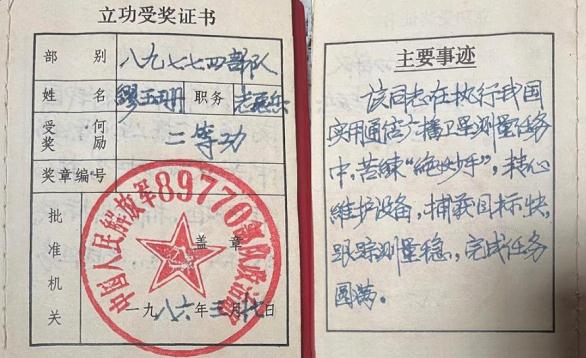 立功受奖证书
部别 八九七七四部队
姓名 缪玉珊 职务 志愿兵
受何奖励 二等功
奖章编号
批准机关
中国人民解放军89770部队政治部
盖章
一九八六年三月 日
主要事迹
该同志在执行我国
实用通信广播卫星测量任务
中,苦练“绝妙手”,精心
维护设备,捕获目标快,
跟踪测量稳,完成任务
圆满。